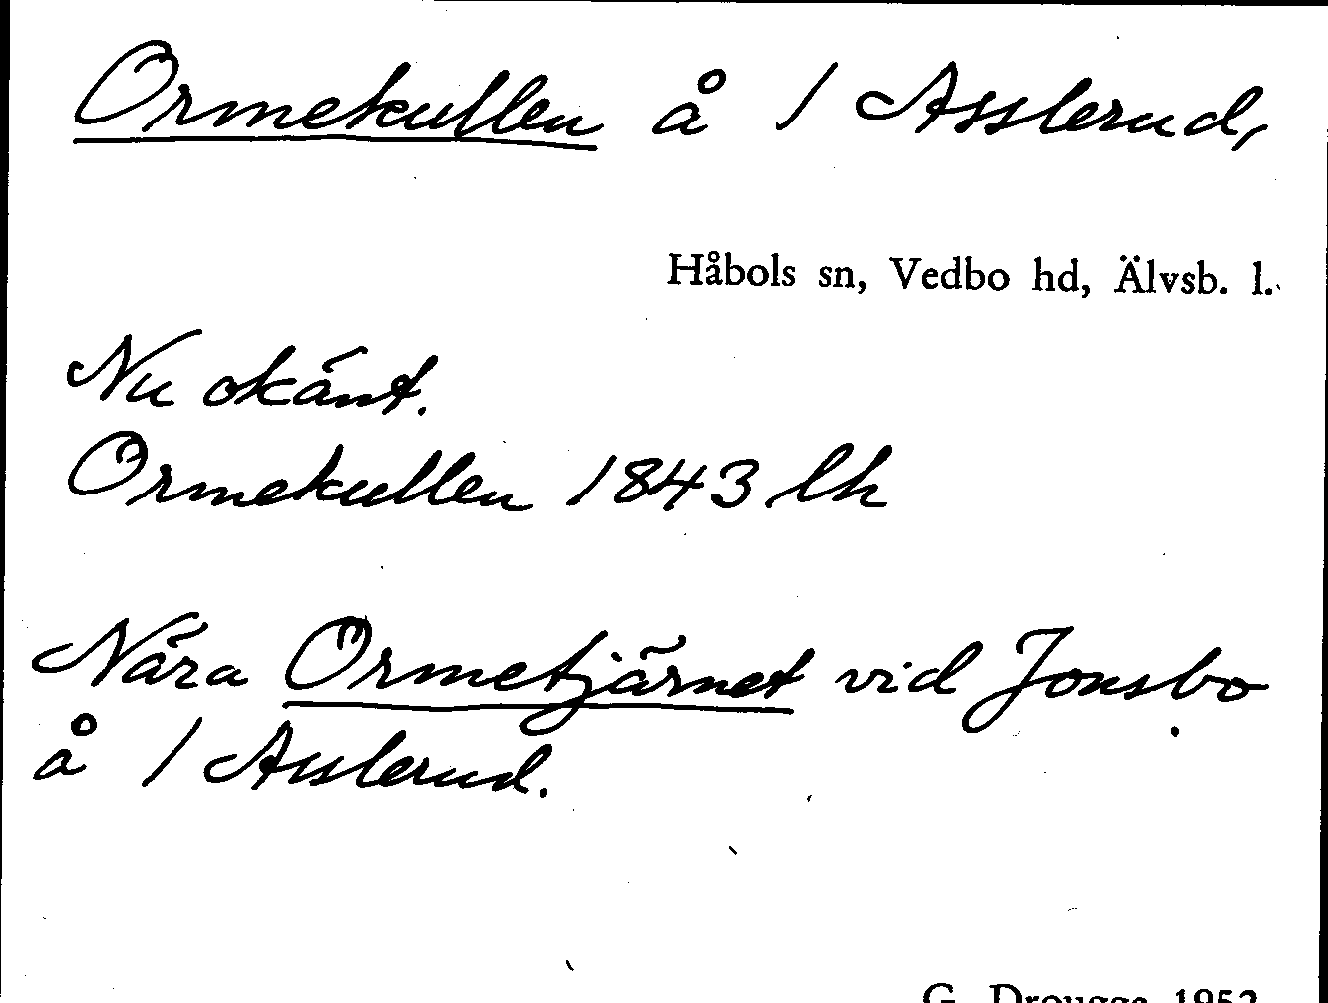 Ormekullen å 1 Asslerud,
Håbols sn, Vedbo hd, Älvsb. l.
Nu okänt.
Ormekullen 1843 lh
Nära Ormetjärnet vid Jonsbo
å 1 Asslerud.
G. Drougge 1952